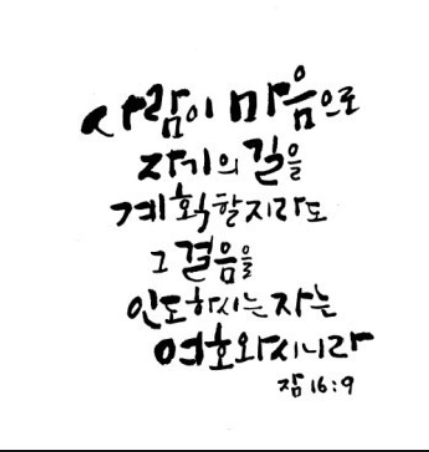 사람이 마음으로
자기의 길을
계획할지라도
그 걸음을
인도하시는 자는
여호와시니라
잠 16:9